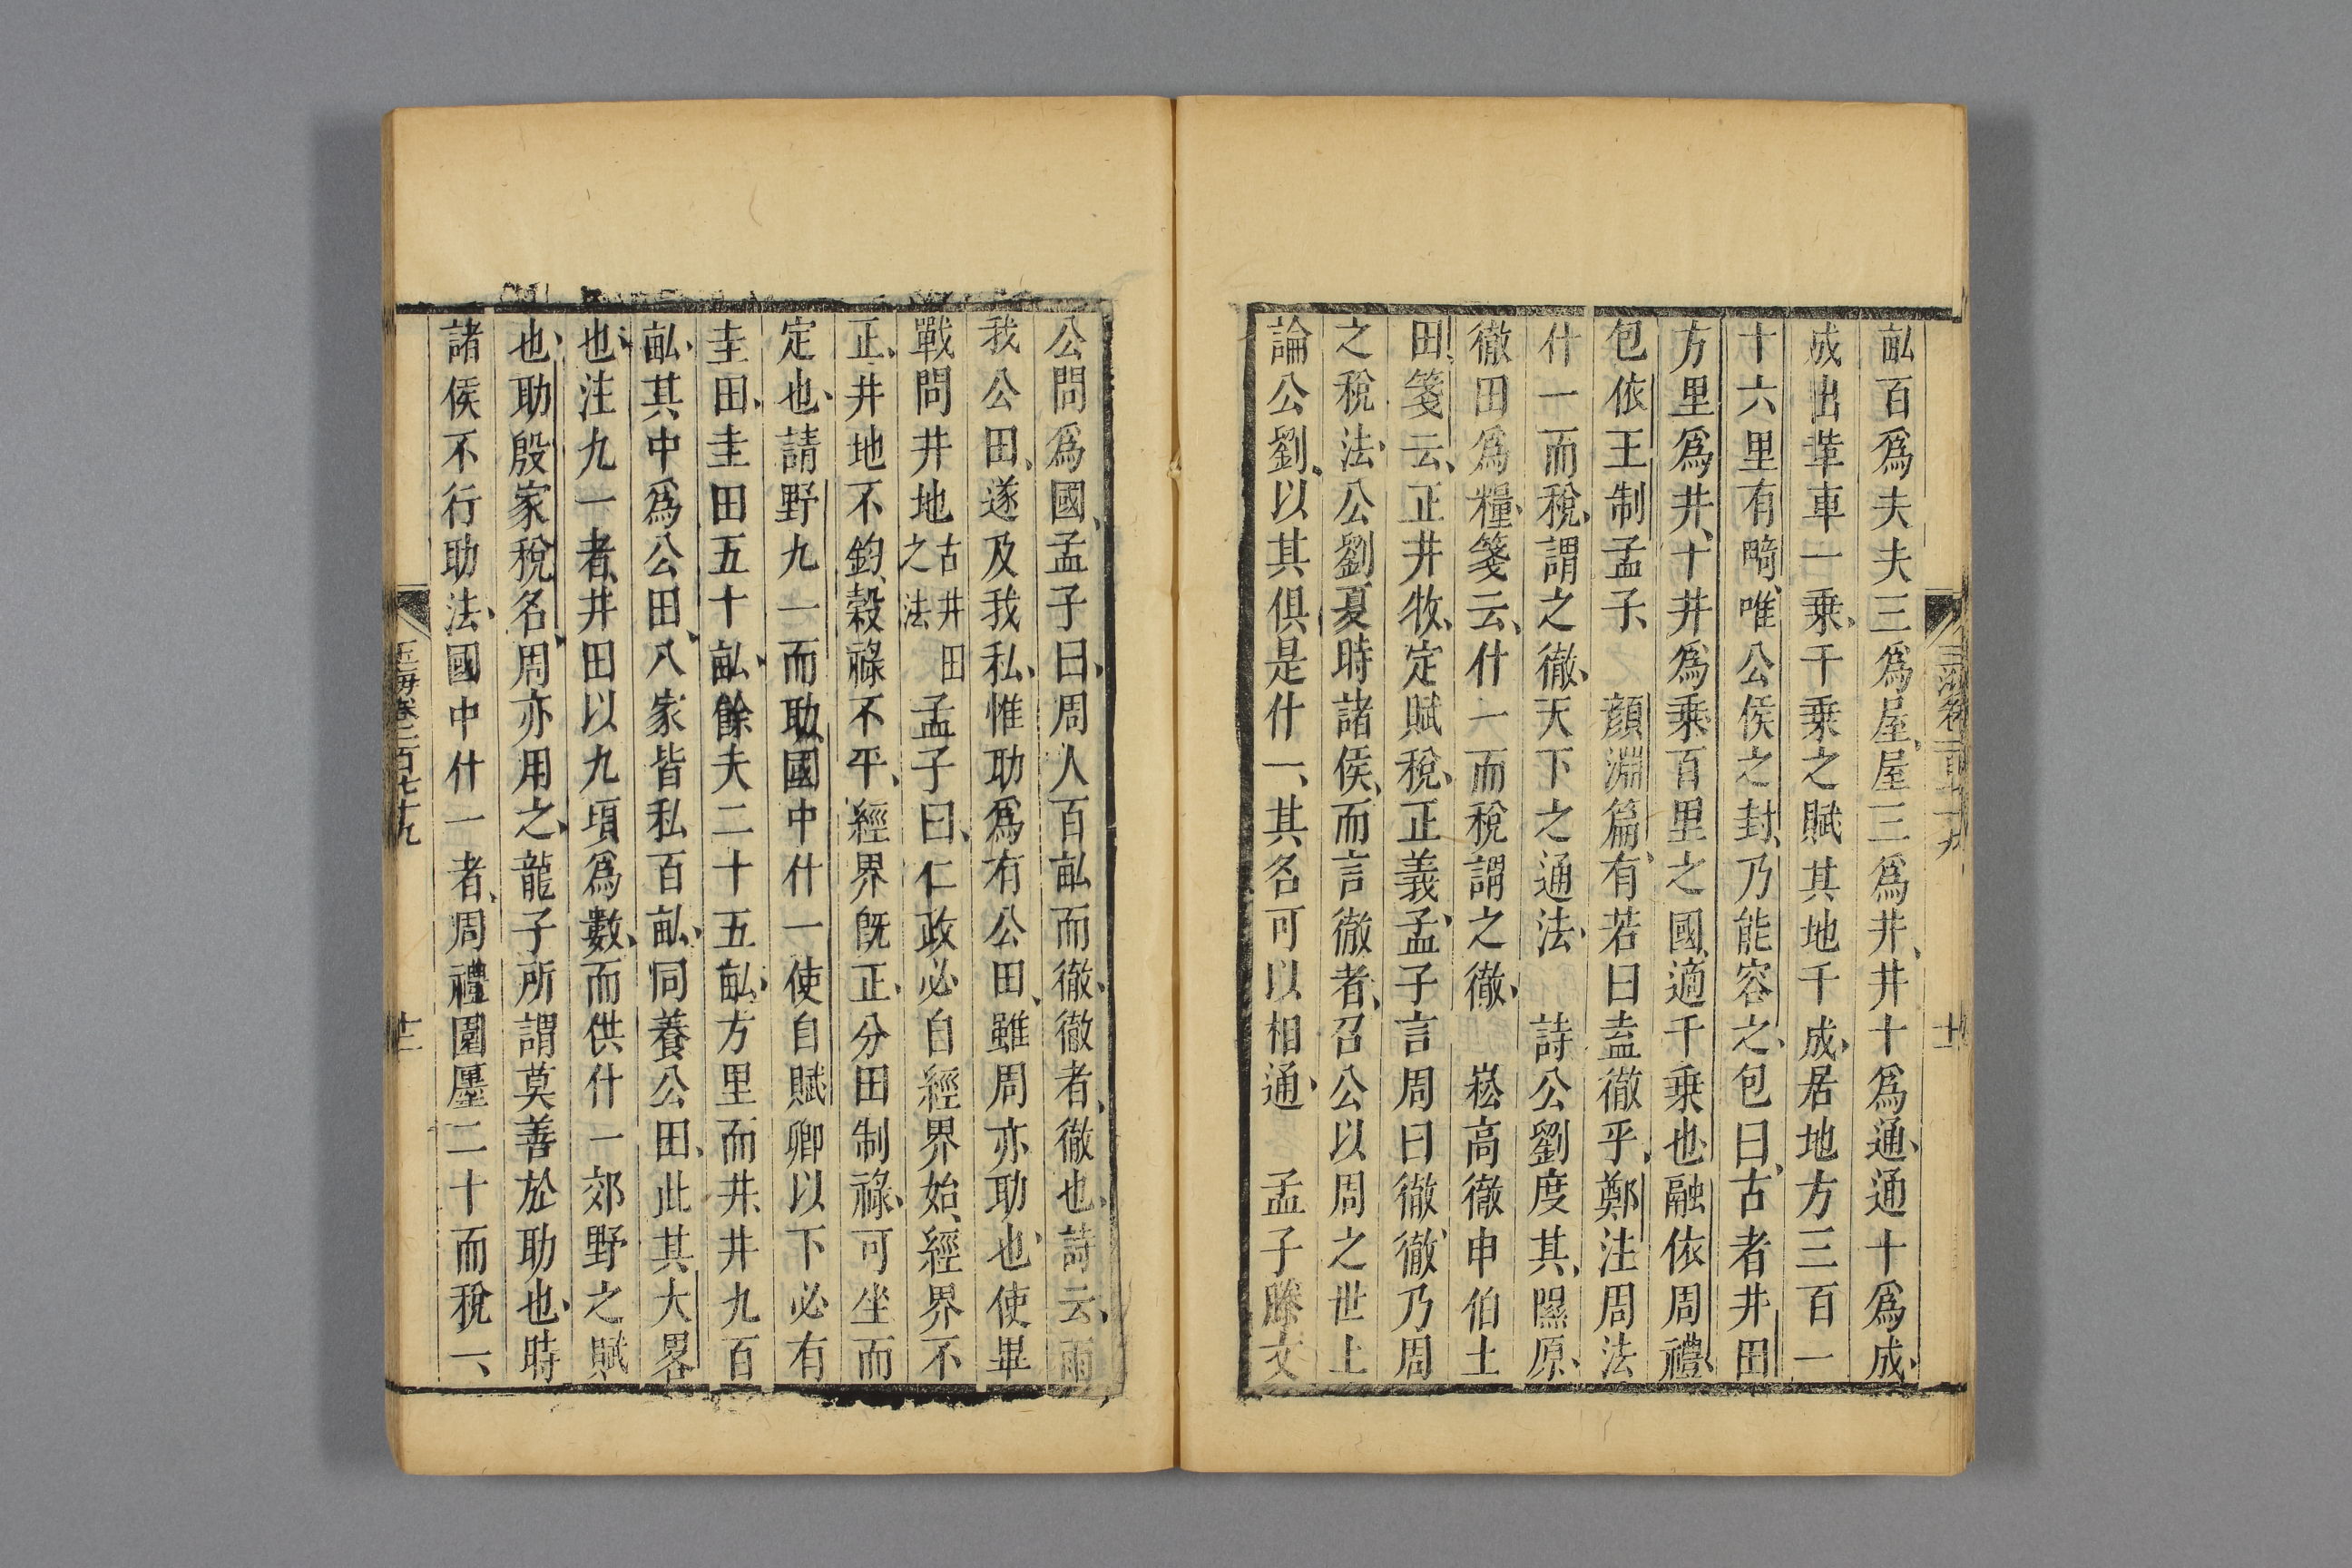 畝百爲夫夫三爲屋、屋三爲井、井十爲通、通十爲成、
成出革車一乗、千乗之賦其地千成、居地方三百一
十六里有畸、唯公侯之封、乃能容之、包曰、古者井田
方里爲井、十井爲乗、百里之國、適千乗也、融依周禮、
包依王制孟子、顔淵篇、有若曰盍徹乎、鄭注周法
什一而稅、謂之徹、天下之通法、詩公劉度其、隰原、
徹田爲糧、箋云、什一而稅謂之徹、崧高徹申伯土
田、箋云、正井牧、定賦稅、正義、孟子言周曰徹、徹乃周
之稅法、公劉夏時諸侯、而言徹者、召公以周之世上
論公劉、以其俱是什一、其名可以相通、孟子滕文
公問爲國、孟子曰、周人百畝而徹、徹者、徹也、詩云、雨
我公田、遂及我私、惟助爲有公田、雖周亦助也、使畢
戰問井地古井田之法孟子曰、仁政必自經界始、經界不
正、井地不鈞、穀祿不平、經界旣正、分田制祿、可坐而
定也、請野九一而助、國中什一使自賦卿以下必有
圭田、圭田五十畝、餘夫二十五畝、方里而井、井九百
畝、其中爲公田、八家皆私百畝、同養公田、此其大畧
也、注九一者、井田以九頃爲數、而供什一郊野之賦
也、助殷家稅名、周亦用之、龍子所謂莫善於助也、時
諸侯不行助法、國中什一者、周禮園廛二十而稅一、
玉海卷一百七十九
十二